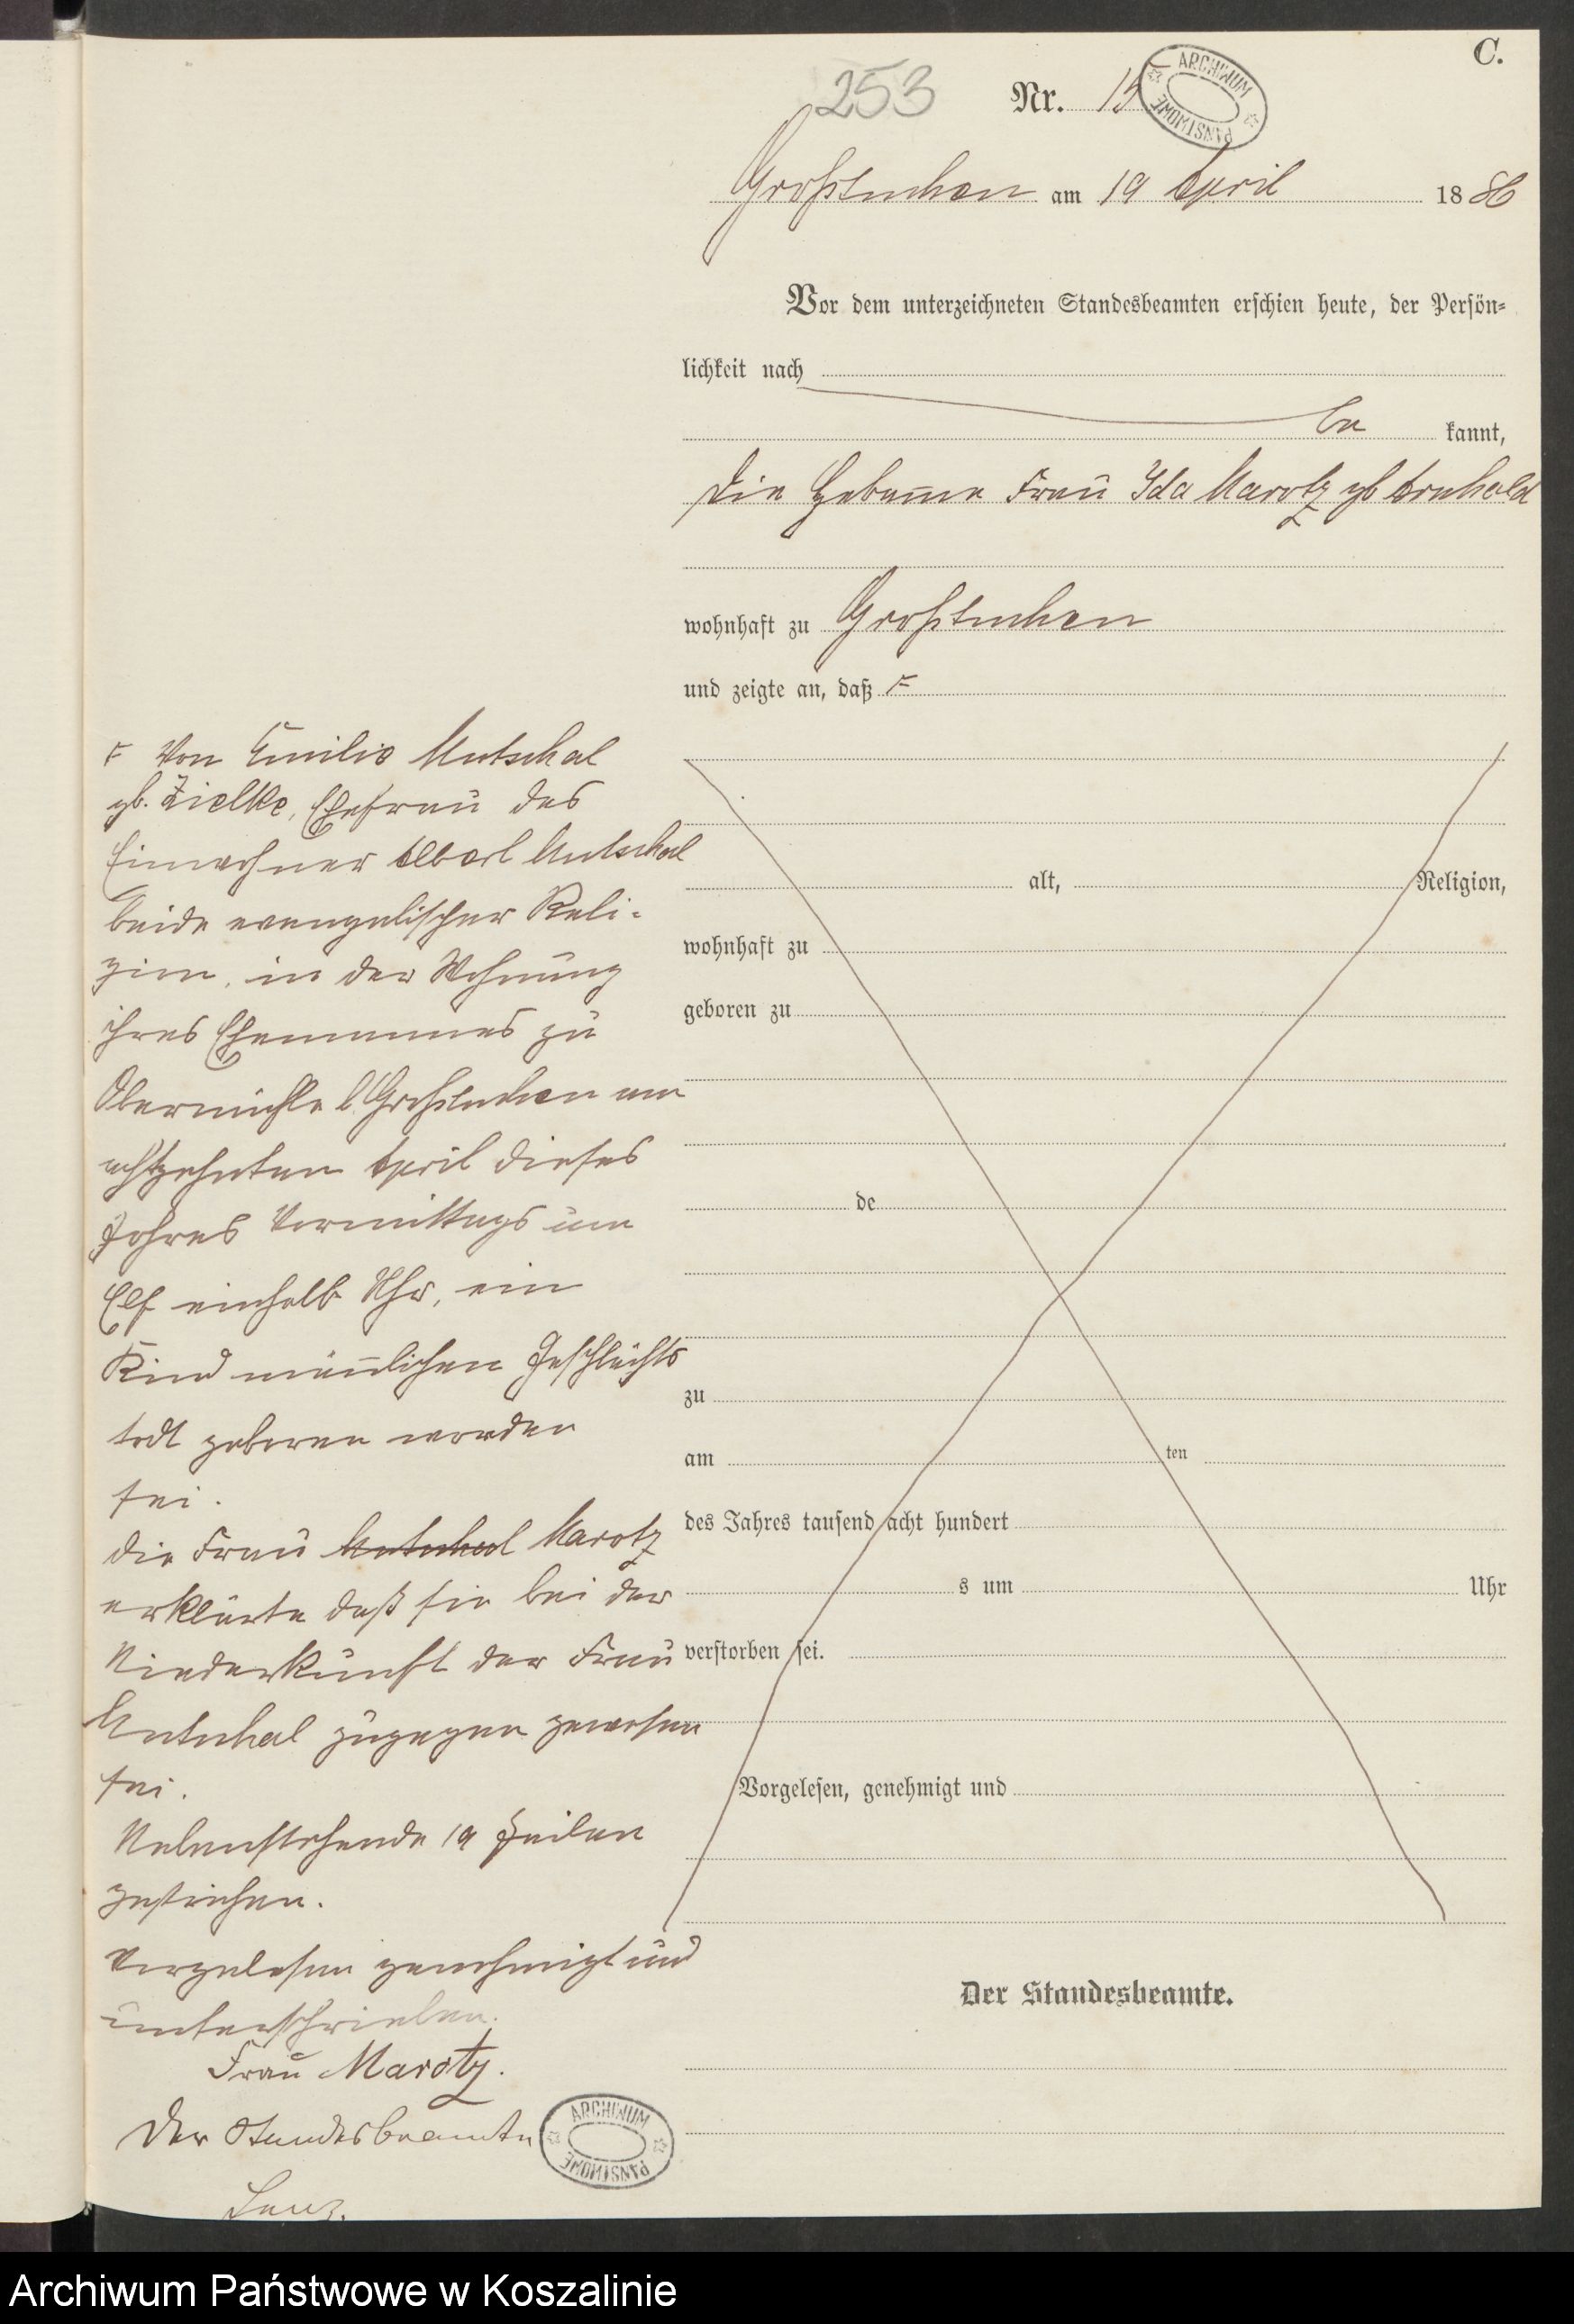 C.
253
Nr. 15
ARCHIWUM PAŃSTWOWE
Großtuchen am 19 April 1886
Vor dem unterzeichneten Standesbeamten erschien heute, der Persön-
lichkeit nach
be kannt,
die Hebamme Frau Ida Marotz gb Arnhold
wohnhaft zu Großtuchen
und zeigte an, daß F
F Von Emilie Mutschal
gb. Zielke, Ehefrau des
Einwohner Albert Mutschal
beide evangelischer Reli-
gion, in der Wohnung
ihres Ehemannes zu
Obermühle b Großtuchen am
achtzehnten April dieses
Jahres Vormittags um
Elf einhalb Uhr, ein
Kind männlichen Geschlechts
todt geboren worden
sei.
die Frau Mutschal Marotz
erklärte daß sie bei der
Niederkunft der Frau
Mutschal zugegen gewesen
sei.
Nebenstehende 19 Zeilen
gestrichen.
Vorgelesen genehmigt und
unterschrieben.
Frau Marotz.
Der Standesbeamte
ARCHIWUM PAŃSTWOWE
alt, Religion,
wohnhaft zu
geboren zu
de
zu
am ten
des Jahres tausend acht hundert
s um Uhr
verstorben sei.
Vorgelesen, genehmigt und
Der Standesbeamte.
Archiwum Państwowe w Koszalinie